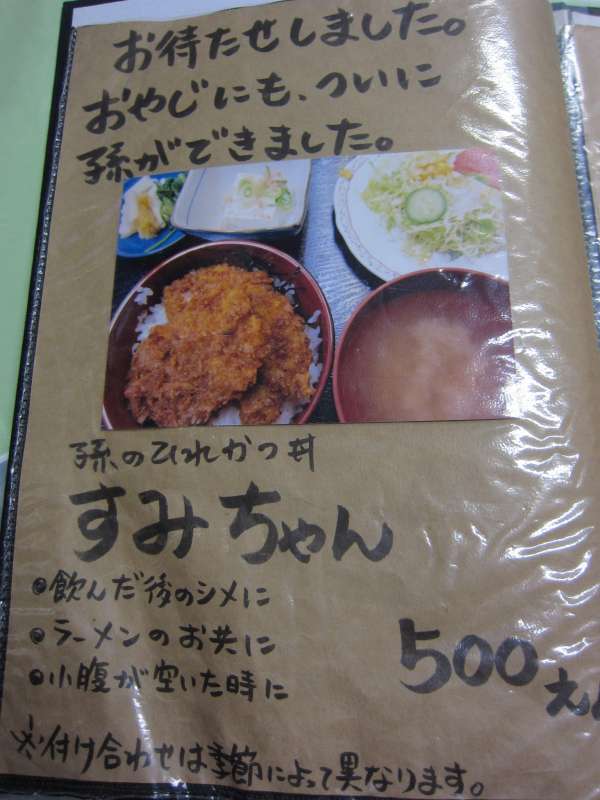 お待たせしました。
おやじにも、ついに
孫ができました。
孫のひれかつ丼
すみちゃん
●飲んだ後のシメに
●ラーメンのお共に
●小腹が空いた時に
500えん
※付け合わせは季節によって異なります。